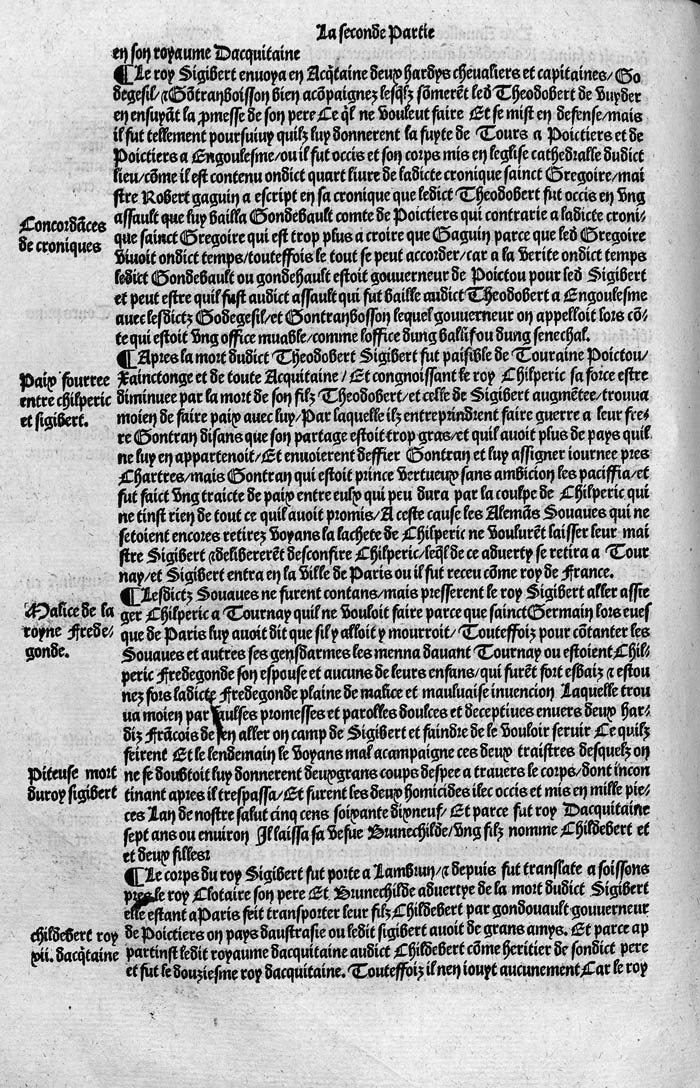 La seconde Partie
en son royaume Dacquitaine
¶Le roy Sigibert envoya en Acq̃taine deux hardys chevaliers et capitaines/Go
degesil/⁊Gõtranboisson bien acõpaignez lesq̃lz sõmerẽt led Theodobert de vuyder
en ensuyãt la p̃messe de son pere Ce q̃l ne voulut faire Et se mist en defense/mais
il fut tellement poursuiuy quilz luy donnerent la fuyte de Tours a Poictiers et de
Poictiers a Engoulesme/ou il fut occis et son corps mis en leglise cathedralle dudict
lieu/cõme il est contenu ondict quart livre de ladicte cronique sainct Gregoire/mai
stre Robert gaguin a escript en sa cronique que ledict Theodobert fut occis en vng
Concordãces
de croniques
assault que luy bailla Gondebault comte de Poictiers qui contrarie a ladicte croni/
que sainct Gregoire qui est trop plus a croire que Gaguin parce que led Gregoire
vivoit ondict temps/touteffois le tout se peut accorder/car a la verite ondict temps
ledict Gondebault ou gondehault estoit gouuerneur de Poictou pour led Sigibert
et peut estre quil fust audict assault qui fut baille audict Theodobert a Engoulesme
avec lesdictz Godegesil/et Gontranbosson lequel gouuerneur on appelloit lors cõ/
te qui estoit vng office muable/comme loffice dung baillif ou dung senechal.
¶Apres la mort dudict Theodobert Sigibert fut paisible de Touraine Poictou/
Paix fourree
entre chilperic
et sigibert.
Xainctonge et de toute Acquitaine/Et congnoissant le roy Chilperic sa force estre
diminuee par la mort de son filz Theodobert/et celle de Sigibert augmẽtee/trouua
moien de faire paix avec luy/Par laquelle ilz entreprindrent faire guerre a leur fre/
re Gontran disans que son partage estoit trop gras/et quil avoit plus de pays quil
ne luy en appartenoit/Et envoierent deffier Gontran et luy assigner iournee pres
Chartres/mais Gontran qui estoit prince vertueux sans ambicion les paciffia/et
fut faict vng traicte de paix entre eulx qui peu dura par la coulpe de Chilperic qui
ne tinst rien de tout ce quil avoit promis/A ceste cause les Alemãs Souaues qui ne
sestoient encores retirez voyans la lachete de Chilperic ne voulurẽt laisser leur mai
stre Sigibert ⁊delibererẽt desconfire Chilperic/leq̃l de ce aduerty se retira a Tour
nay/et Sigibert entra en la ville de Paris ou il fut receu cõme roy de France.
¶Lesdictz Souaues ne furent contans/mais presserent le roy Sigibert aller assie
Malice de la
royne Frede/
gonde.
ger Chilperic a Tournay quil ne vouloit faire parce que sainct Germain lors eues
que de Paris luy avoit dit que sil y alloit y mourroit/Touteffoiz pour cõtanter les
Souaues et autres ses gensdarmes les menna davant Tournay ou estoient Chil/
peric Fredegonde son espouse et aucuns de leurs enfans/qui furẽt fort esbaiz ⁊ estou
nez fors ladicte Fredegonde plaine de malice et mauluaise invencion Laquelle trou
ua moien par faulses promesses et parolles doulces et deceptives envers deux har/
diz Frãcois de sen aller on camp de Sigibert et faindre de le vouloir servir Ce quilz
feirent Et le lendemain le voyans mal acampaigne ces deux traistres desquelz on
Piteuse mort
du roy sigibert
ne se doubtoit luy donnerent deux grans coups despee a travers le corps/dont incon
tinant apres il trespassa/Et furent les deux homicides ilec occis et mis en mille pie/
ces Lan de nostre salut cinq cens soixante dixneuf/Et parce fut roy Dacquitaine
sept ans ou environ Il laissa sa vefue Brunechilde/vng filz nomme Childebert et
et deux filles:
¶Le corps du roy Sigibert fut porte a Lambrun/⁊ depuis fut translate a soissons
pres le roy Clotaire son pere Et Brunechilde advertye de la mort dudict Sigibert
elle estant a Paris feit transporter leur filz Childebert par gondouault gouuerneur
childebert roy
xii. dacq̃taine
de Poictiers on pays daustrasie ou ledit sigibert avoit de grans amys. Et parce ap
partinst ledit royaume dacquitaine audict Childebert cõme heritier de sondict pere
et fut le douziesme roy dacquitaine. Touteffoiz il nen iouyt aucunement Car le roy